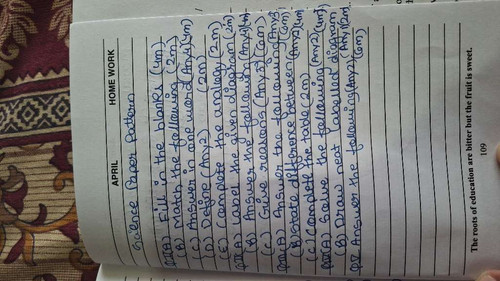 APRIL HOME WORK
Science Paper Pattern
Q.I (A) Fill in the blanks (4m)
(B) Match the following (2m)
(C) Answer in one word (Any4) (4m)
(D) Define (Any2) (2m)
(E) Complete the analogy (2m)
Q.II (A) Label the given diagram (2m)
(B) Answer the following (Any
(C) Give reasons (Any3) (6m)
Q.III (A) Answer the following (Any3) (6m)
(B) State difference between (Any2) (4m)
(C) Complete the table (2m)
Q.IV (A) Solve the following (Any2)
(B) Draw neat labelled diagram (Any
Q.V Answer the following (Any2) (6m)
The roots of education are bitter but the fruit is sweet.
109